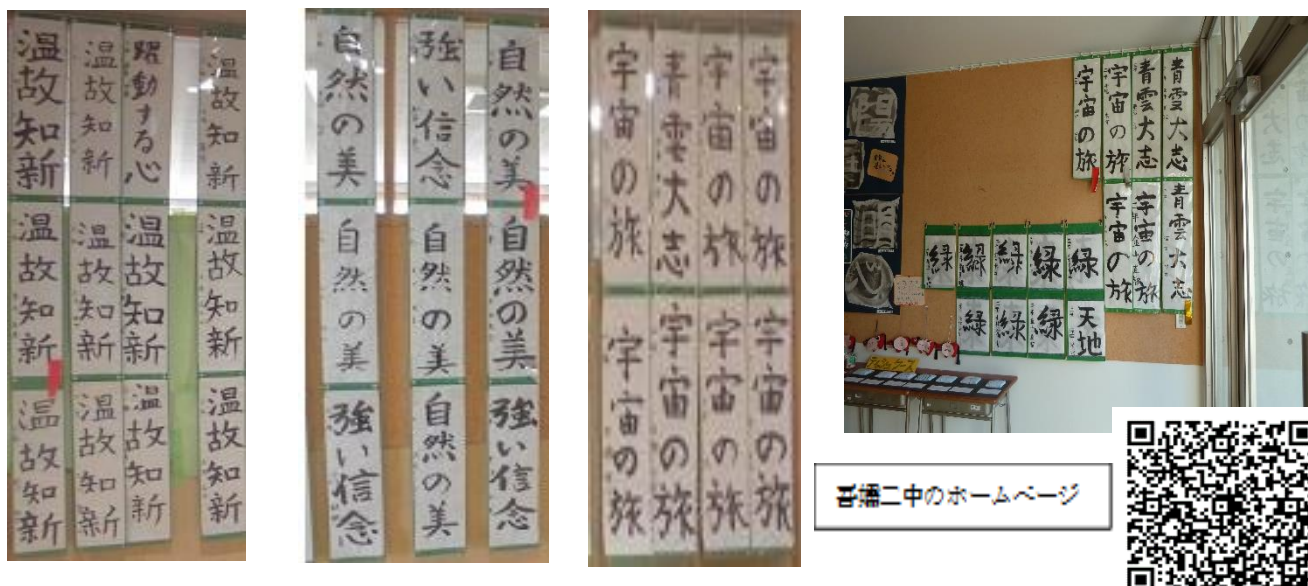 温故知新
温故知新
躍動する心
温故知新
温故知新
温故知新
温故知新
温故知新
温故知新
温故知新
温故知新
温故知新
自然の美
強い信念
自然の美
自然の美
自然の美
自然の美
強い信念
自然の美
強い信念
宇宙の旅
青雲大志
宇宙の旅
宇宙の旅
宇宙の旅
宇宙の旅
宇宙の旅
宇宙の旅
宇宙の旅
宇宙の旅
青雲大志
青雲大志
宇宙の旅
宇宙の旅
青雲大志
緑
緑
緑
緑
緑
緑
緑
緑
天地
吾嬬二中のホームページ